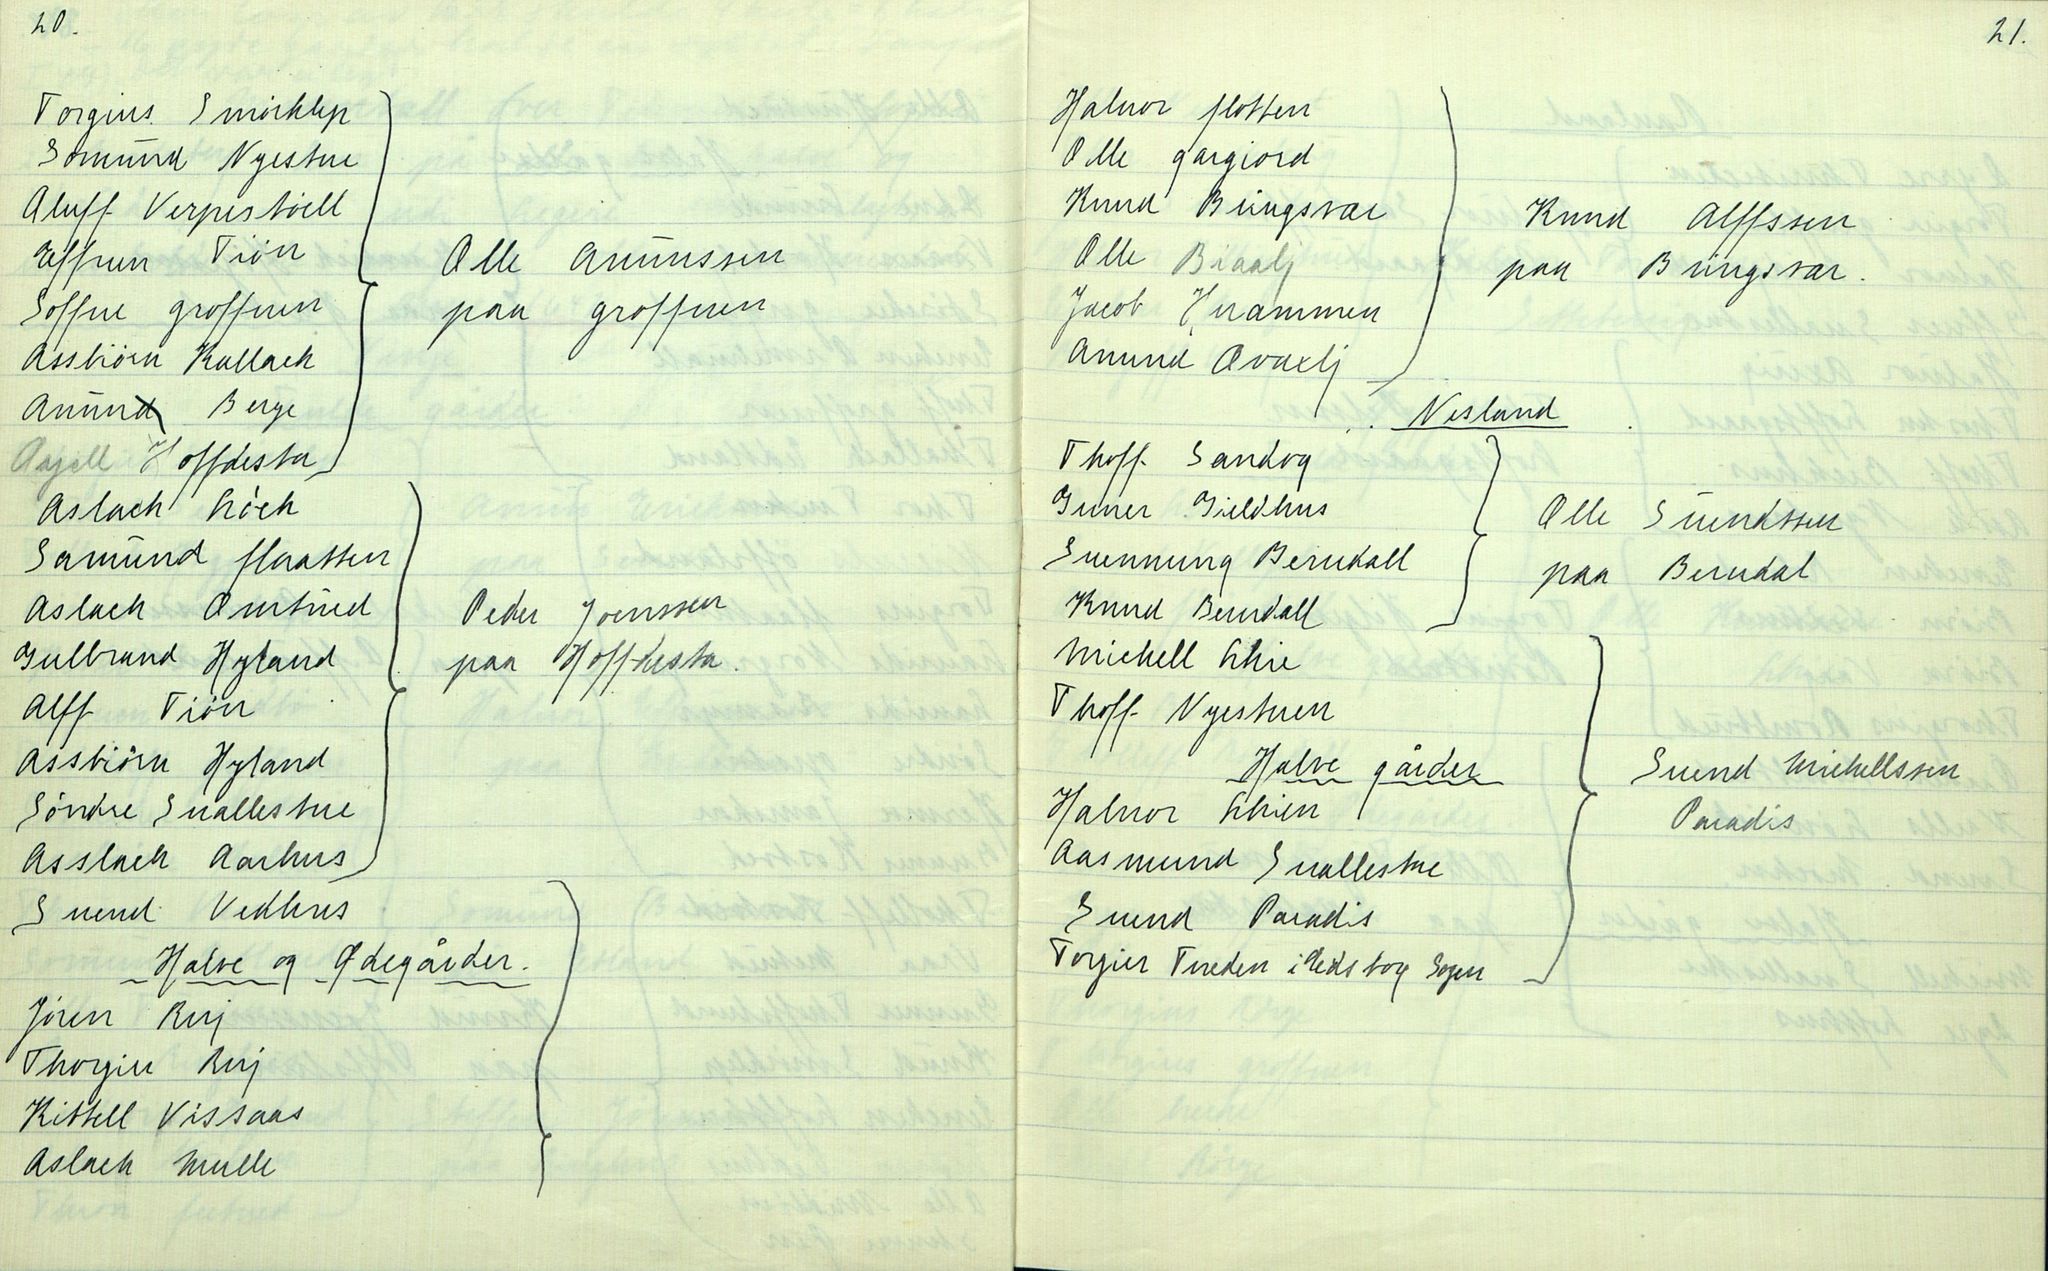 20.
Torgius Smörklep
Somünd Nyestue
Aluff Verpestöell
Effuen Tiön
Soffue groffuen
Assbiörn Kallach
Anünd Berge
Aajell Hoffdesta
Olle Anünssen
paa groffuen
Aslach Löch
Samünd flaatten
Aslach Omtued
Gulbrand Hyland
Alff Tiön
Assbiörn Hyland
Söndre Suallestue
Asslach Aarhus
Peder Joenssen
paa Hoffdesta.
Suend Vedhus
Halve og Ødegårder.
Jören Ruj
Thorgier Ruj
Kittell Vissaas
Aslach Mulle
21.
Haluor flotten
Olle gargiord
Knud Bringsvar
Olle Biaalj
Jacob Hrammen
Anund Ovaelj
Knud Alffssen
paa Bringsvar.
Nesland
Thoff Sandog
Guner Gieldhus
Suennung Berudall
Knud Berudall
Olle Suendssen
paa Berudal
Michell Lhie
Thoff Nyestuen
Halve gårder
Haluor Lhien
Aasmund Suallestue
Suend Paradis
Torgier Tueden i Ledsborg Sogen
Suend Michellssen
Paradis